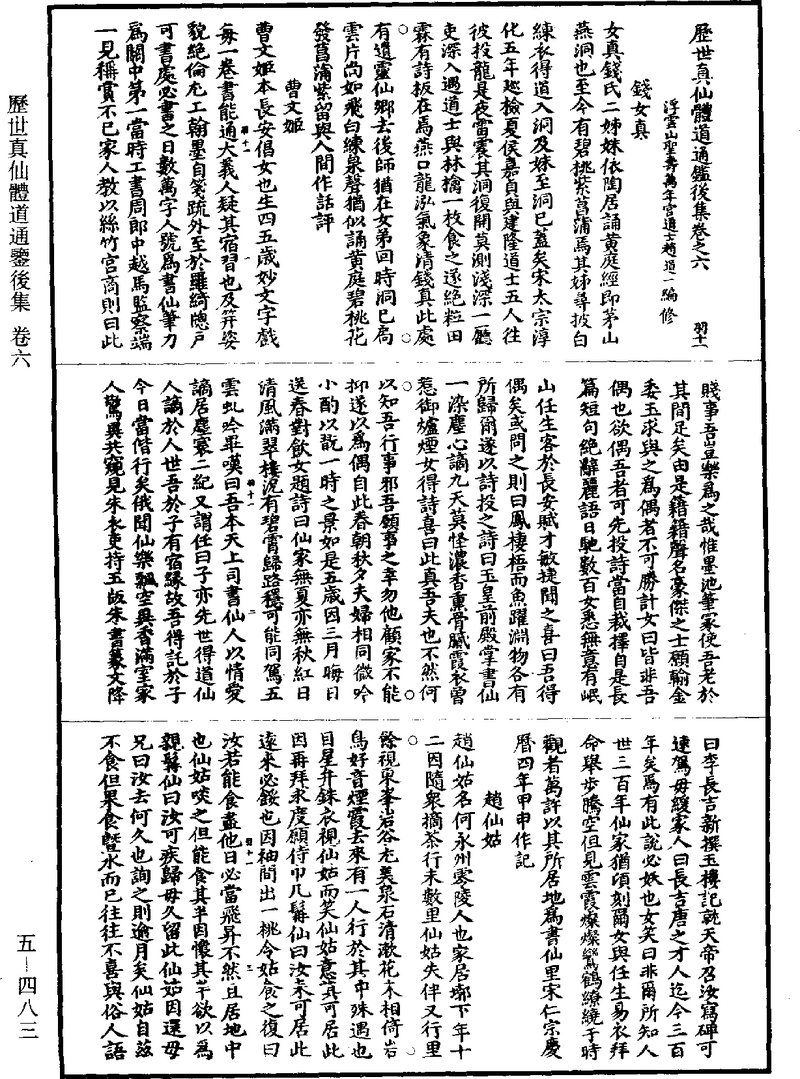 歷世真仙體道通鑑後集卷之六 羽十一
浮雲山聖壽萬年宮道士趙道一編修
錢女真
女真錢氏二姊妹依陶居誦黄庭經即茅山
燕洞也至今有碧桃紫菖蒲焉其姊尋披白
練衣得道入洞及妹至洞已蓋矣宋太宗淳
化五年巡檢夏侯嘉貞與建隆道士五人往
彼投龍是夜雷震其洞復開莫測淺深一廳
吏深入遇道士與林擒一枝食之遂絕粒田
霖有詩板在焉燕口龍泓氣象清錢真此處
有遺靈仙鄉去後師猶在女弟回時洞已扃
雲片尚如飛白練泉聲猶似誦黄庭碧桃花
發菖蒲紫留與人間作話評
曹文姬
曹文姬本長安倡女也生四五歲妙文字戲
每一卷書能通大義人疑其宿習也及笄姿
貌絕倫尤工翰墨自箋疏外至於羅綺牕戶
可書處必書之日數萬字人號為書仙筆力
為關中第一當時工書周郎中越馬監察端
一見稱賞不已家人教以絲竹宮商則曰此
賤事吾豈樂為之哉惟墨池筆冢使吾老於
其間足矣由是籍籍聲名豪傑之士願輸金
委玉求與之為偶者不可勝計女曰皆非吾
偶也欲偶吾者可先投詩當自裁擇自是長
篇短句絕辭麗語日馳數百女悉無意有岷
山任生客於長安賦才敏捷聞之喜曰吾得
偶矣或問之則曰鳳棲梧而魚躍淵物各有
所歸爾遂以詩投之詩曰玉皇前殿掌書仙
一染塵心謫九天莫怪濃香熏骨膩霞衣曾
惹御爐煙女得詩喜曰此真吾夫也不然何
以知吾行事邪吾願事之幸勿他顧家不能
抑遂以為偶自此春朝秋夕夫婦相同微吟
小酌以翫一時之景如是五歲因三月晦日
送春對飲女題詩曰仙家無夏亦無秋紅日
清風滿翠樓況有碧霄歸路穩可能同駕五
雲虬吟畢嘆曰吾本天上司書仙人以情愛
謫居塵寰二紀又謂任曰子亦先世得道仙
人謫於人世吾於子有宿緣故吾得託於子
今日當偕行矣俄聞仙樂飄空異香滿室家
人驚異共窺見朱衣吏持玉版朱書篆文降
曰李長吉新撰玉樓記就天帝召汝寫碑可
速駕毋緩家人曰長吉唐之才人迄今三百
年矣焉有此說必妖也女笑曰非爾所知人
世三百年仙家猶頃刻爾女與任生易衣拜
命舉步騰空但見雲霞燦燦鸞鶴繚繞于時
觀者萬許以其所居地為書仙里宋仁宗慶
曆四年甲申作記
趙仙姑
趙仙姑名何永州零陵人也家居鄉下年十
二因隨衆摘茶行未數里仙姑失伴又行里
餘視東峯岩谷尤美泉石清漱花木相倚岩
鳥好音煙霞去來有一人行於其中殊遇也
目星弁銖衣視仙姑而笑仙姑意其可居此
因再拜求度願侍巾几髯仙曰汝未可居此
遠來必餒也因袖間出一桃令姑食之復曰
汝若能食盡他日必當飛昇不然且居地中
也仙姑啖之但能食其半因懷其半欲以為
親髯仙曰汝可疾歸毋久留此仙姑因還母
兄曰汝去何久也詢之則逾月矣仙姑自茲
不食但果食暨水而已往往不喜與俗人語
歷世真仙體道通鑒後集 卷六
五—四八三